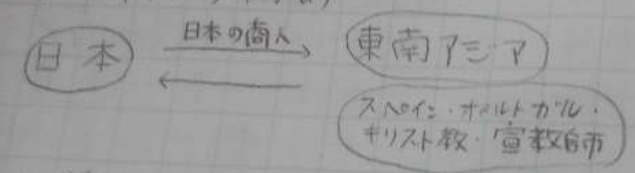 日本の商人
日本
東南アジア
スペイン・ポルトガル・
キリスト教・宣教師